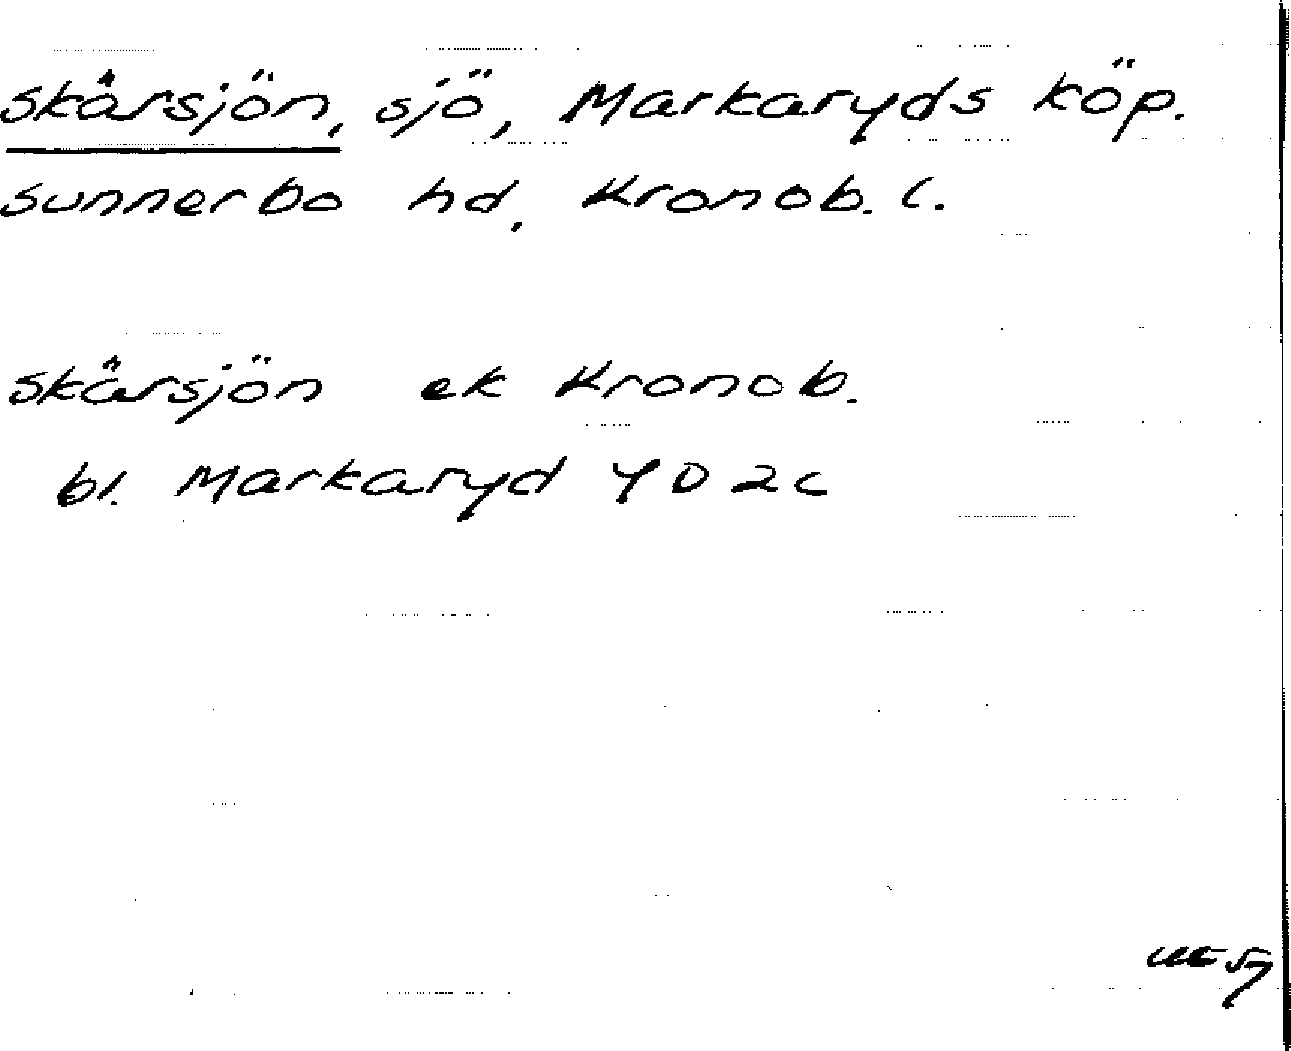 Skårsjön, sjö, Markaryds köp.
Sunnerbo hd, Kronob. l.
Skårsjön ek Kronob.
bl. Markaryd 4D2c